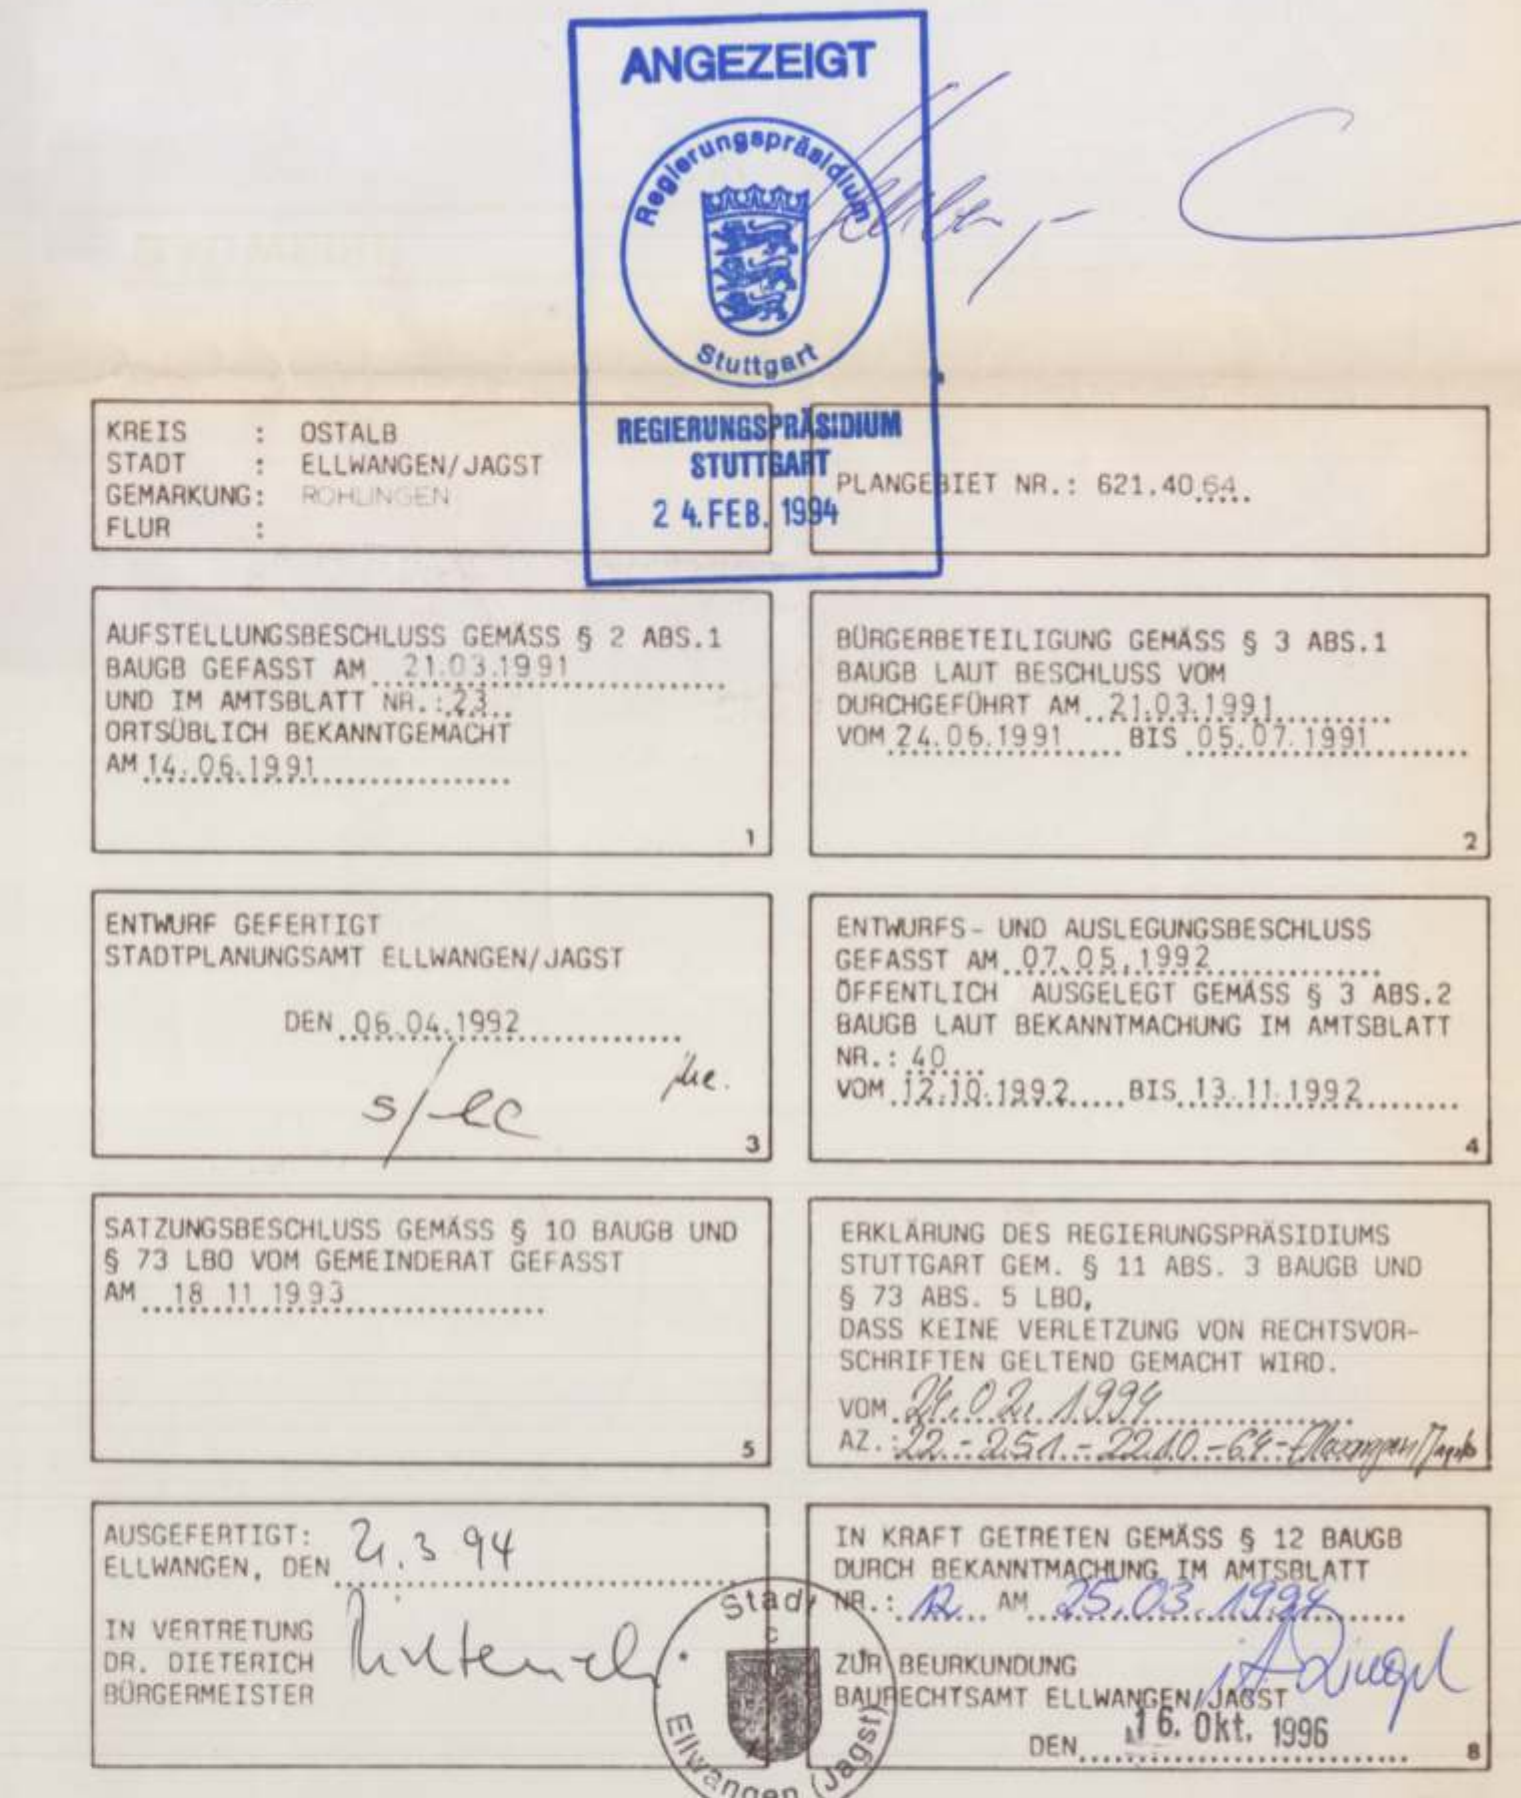 ANGEZEIGT
Regierungspräsidium
Stuttgart
REGIERUNGSPRÄSIDIUM
STUTTGART
2 4. FEB. 1994
KREIS : OSTALB
STADT : ELLWANGEN/JAGST
GEMARKUNG: RÖHLINGEN
FLUR :
PLANGEBIET NR.: 621.40.64
AUFSTELLUNGSBESCHLUSS GEMÄSS § 2 ABS.1
BAUGB GEFASST AM 21.03.1991
UND IM AMTSBLATT NR.: 23
ORTSÜBLICH BEKANNTGEMACHT
AM 14.06.1991
1
BÜRGERBETEILIGUNG GEMÄSS § 3 ABS.1
BAUGB LAUT BESCHLUSS VOM
DURCHGEFÜHRT AM 21.03.1991
VOM 24.06.1991 BIS 05.07.1991
2
ENTWURF GEFERTIGT
STADTPLANUNGSAMT ELLWANGEN/JAGST
DEN 06.04.1992
3
ENTWURFS- UND AUSLEGUNGSBESCHLUSS
GEFASST AM 07.05.1992
ÖFFENTLICH AUSGELEGT GEMÄSS § 3 ABS.2
BAUGB LAUT BEKANNTMACHUNG IM AMTSBLATT
NR.: 40
VOM 12.10.1992 BIS 13.11.1992
4
SATZUNGSBESCHLUSS GEMÄSS § 10 BAUGB UND
§ 73 LBO VOM GEMEINDERAT GEFASST
AM 18 11 1993
5
ERKLÄRUNG DES REGIERUNGSPRÄSIDIUMS
STUTTGART GEM. § 11 ABS. 3 BAUGB UND
§ 73 ABS. 5 LBO,
DASS KEINE VERLETZUNG VON RECHTSVOR-
SCHRIFTEN GELTEND GEMACHT WIRD.
VOM 24.02.1994
AZ.: 22-251.-2210.-64-Ellwangen/Jagst
AUSGEFERTIGT:
ELLWANGEN, DEN 21.3 94
IN VERTRETUNG
DR. DIETERICH
BÜRGERMEISTER
Dieterich
Stadt
Ellwangen (Jagst)
IN KRAFT GETRETEN GEMÄSS § 12 BAUGB
DURCH BEKANNTMACHUNG IM AMTSBLATT
NR.: 12 AM 25.03.1994
ZUR BEURKUNDUNG
BAURECHTSAMT ELLWANGEN/JAGST
DEN 16. Okt. 1996
8